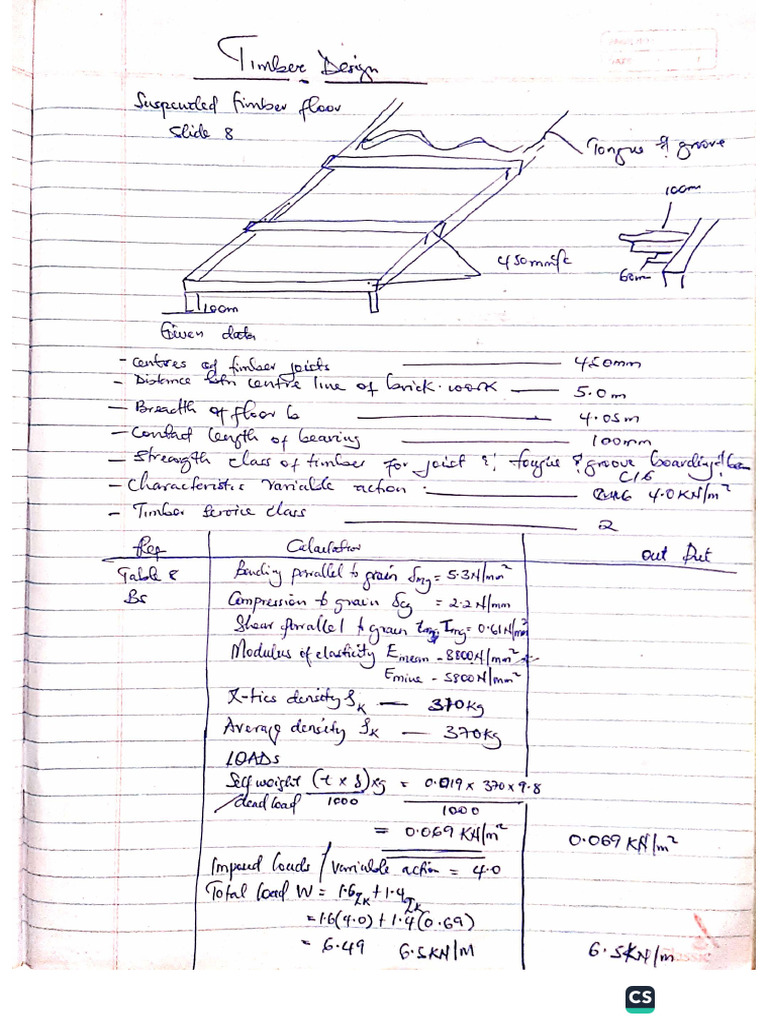 Timber Design
Suspended timber floor
Slide 8
Tongue & groove
100m
450mm c/c
60m
100m
Given data
- Centres of timber joists 450mm
- Distance btn centre line of brick work 5.0m
- Breadth of floor b 4.05m
- Contact length of bearing 100mm
- Strength class of timber for joist & tongue & groove boarding
C16
- Characteristic variable action : 4.0KN/m²
- Timber service class 2
Ref Calculation out put
Table 8 Bending parallel to grain fmg = 5.3N/mm²
BS Compression to grain fcg = 2.2N/mm
Shear parallel to grain Tmg = 0.61N/mm²
Modulus of elasticity Emean - 8800N/mm²
Emine - 5800N/mm²
X-tics density ρK — 370kg
Average density ρK — 370kg
LOADS
Self weight (t x ρ)xg = 0.019 x 370 x 9.8
/dead load 1000 1000
= 0.069 KN/m² 0.069 KN/m²
Imposed loads / variable action = 4.0
Total load W = 1.6qK + 1.4gK
= 1.6(4.0) + 1.4(0.69)
= 6.49 6.5KN/M 6.5KN/m
CS